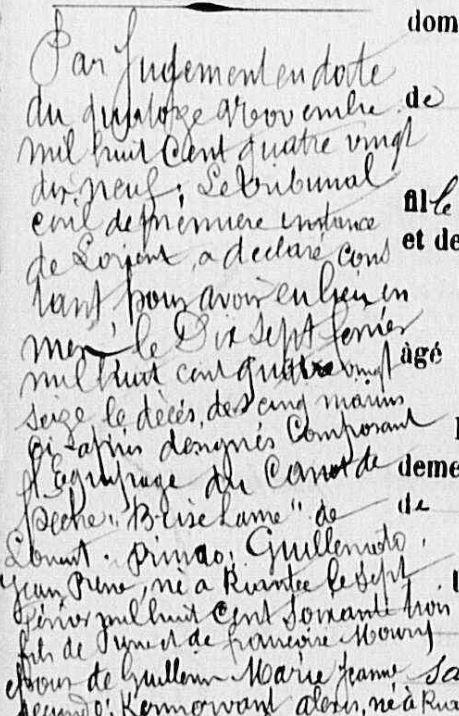 Par Jugement en date
du quatorze Novembre
mil huit Cent quatre vingt
dix neuf. Le tribunal
civil de première instance
de Lorient, a déclaré cons
tant pour avoir eu lieu en
mer, le Dix Sept février
mil huit cent quatre vingt
seize le décès, des cinq marins
ci-après désignés Composant
l'Equipage du Canot de
pêche "Brise Lame" de
Lorient. primo: Guillemoto,
Jean Pierre, né à Riantec le Sept
février mil huit Cent Soixante trois
fils de Pierre et de françoise
époux de Guillemo Marie Jeanne
Secundo: Kermorvant alexis, né à
dom
de
fille
et de
âgé
deme
de